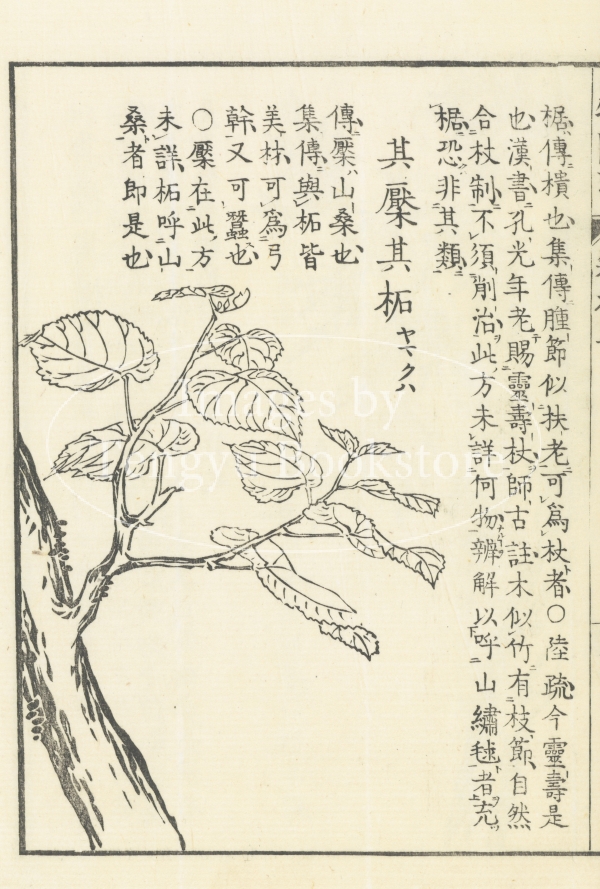 椐傳樻也集傳腫節似扶老可爲杖者○陸疏今靈壽是
也漢書孔光年老賜靈壽杖師古註木似竹有枝節自然
合杖制不須削治此方未詳何物辨解以呼山繡毬者充
椐恐非其類
其檿其柘 ヤマクハ
傳檿山桑也
集傳與柘皆
美材可爲弓
幹又可蠶也
○檿在此方
未詳柘呼山
桑者即是也
Images by
Tengyu Bookstore